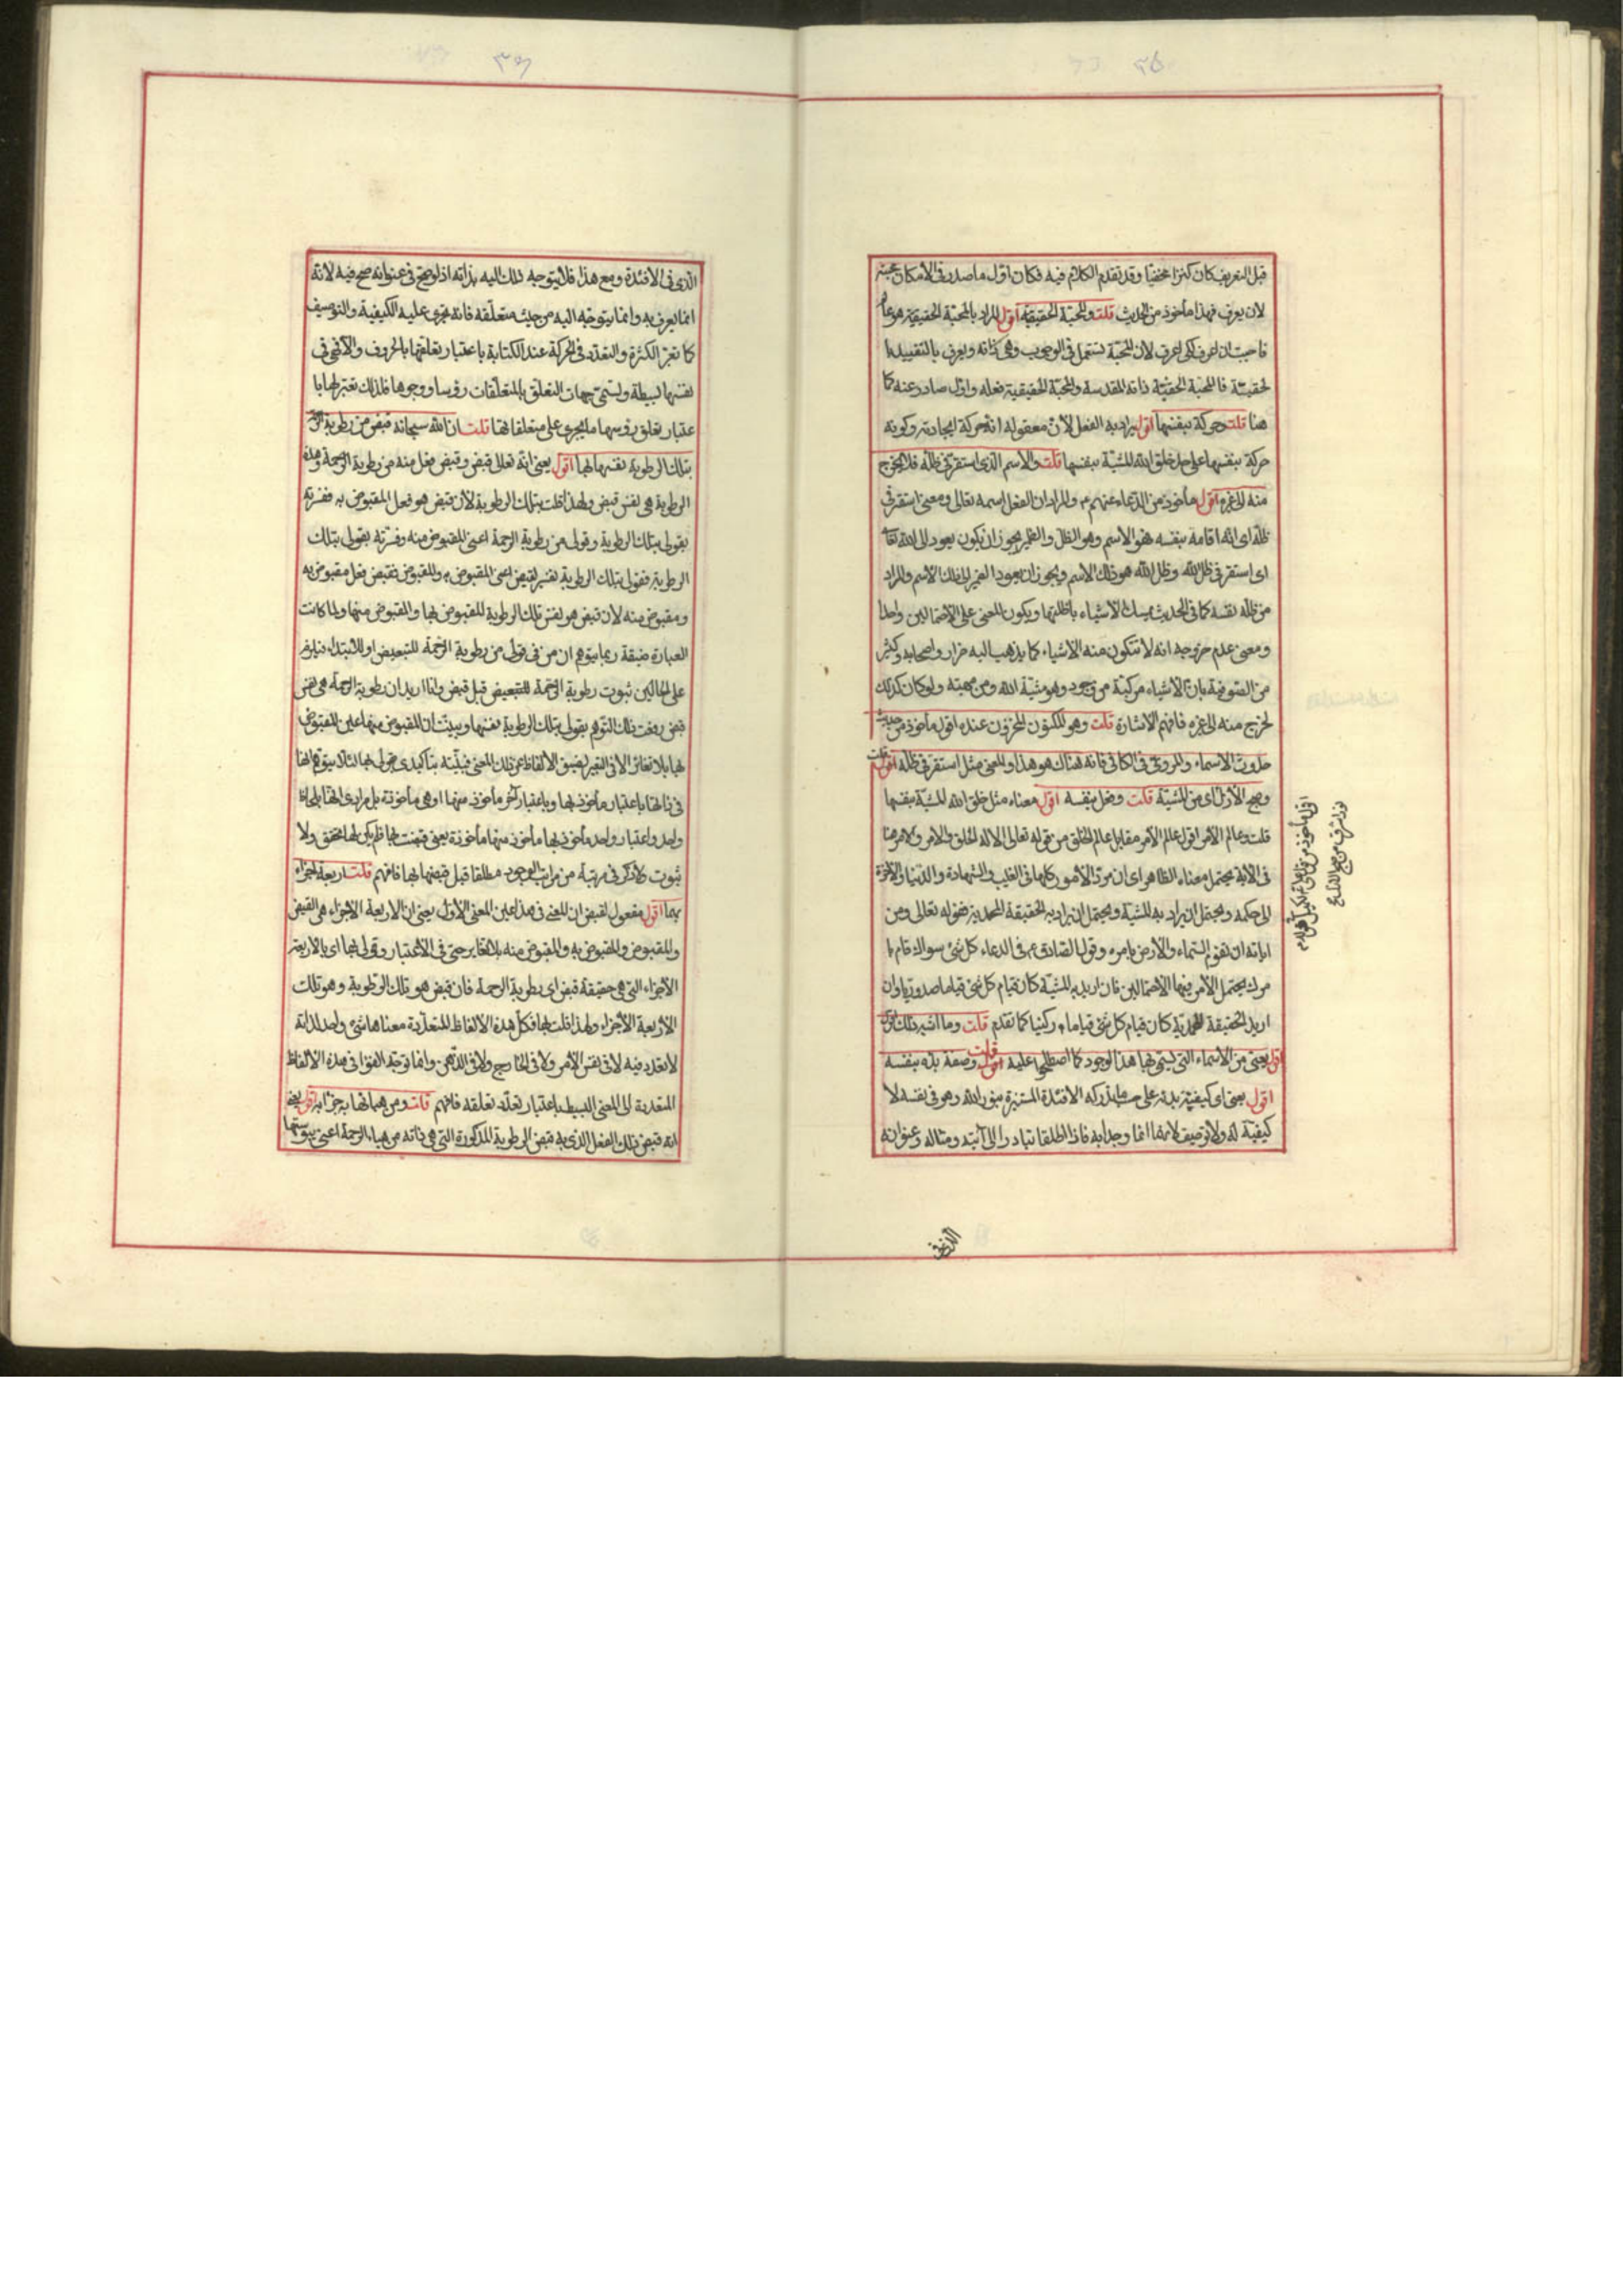 ٣٥
قبل التعريف كان كنزا مخفيا وقد تقدم الكلام فيه فكان اول ما صدر فى الأمكان محبته
لان يعرف فهذا مأخوذ من الحديث قلت والمحبّة الحقيقيّة اقول المراد بالمحبّة الحقيقية هو عالم
فاحببت ان اعرف لكى اعرف لأن المحبّة تستعمل فى الوجوب وهى ذاته ويعرف بالتقييد
لحقيّة فالمحبة الحقيّة ذاته المقدسة والمحبّة الحقيقية فعله واوّل صادر عنه كما
هنا قلت وحركة بنفسها اقول يراد به الفعل لأن معقوله انه حركة ايجادية وكونه
حركة بنفسها على حد خلق الله المشيّة بنفسها قلت والأسم الذى استقر فى ظلّه فلا يخرج
منه الى غيره اقول مأخوذ من الدعاء عنهم ع والمراد ان الفعل اسمه تعالى ومعنى استقر فى
ظلّه اى انّه اقامه بنفسه فهو الاسم وهو الظل والضمير يجوز ان يكون يعود الى الله تعا
اى استقر فى ظل الله وظل الله هو ذلك الاسم ويجوز ان يعود الضمير الى ذلك الأسم والمراد
من ظلّه نفسه كما فى الحديث يمسك الأشياء باظلتها ويكون المعنى على الاحتمالين واحدا
ومعنى عدم خروجه انه لا تتكون منه الأشياء كما يذهب اليه ضرار واصحابه وكثير
من الصّوفية بان الأشياء مركبة من وجود وهو مشيّة الله ومن مهيته ولو كان كذلك
لخرج منه الى غيره فافهم الأشارة قلت وهو المكنون المخزون عنده اقول مأخوذ من حديث
حدوث الأسماء والمروىّ فى الكافى فانه هناك هو هذا والمعنى مثل استقر فى ظله قلت
وصبح الأزل اى من المشيّة قلت وفعل بنفسه اقول معناه مثل خلق الله المشيّة بنفسها
قلت وعالم الأمر اقول عالم الأمر مقابل عالم الخلق من قوله تعالى الا له الخلق والأمر والأمر هنا
فى الأية يحتمل معناه الظاهر اى ان مردّ الأمور كلها فى الغيب والشهادة والدنيا والأخرة
الى حكمه ويحتمل ان يراد به المشيّة ويحتمل ان يراد به الحقيقة المحمدية فقوله تعالى ومن
اياته ان تقوم السّماء والأرض بامره وقول الصّادق ع فى الدعاء كل شئ سواك قام با
مرك يحتمل الأمر فيها الأحتمالين فان اريد به المشيّة كان قيام كل شئ قياما صدوريا وان
اريد الحقيقة المحمديّة كان قيام كل شئ قياما ركنيا كما تقدم قلت وما اشبه ذلك
اقول يعنى من الأسماء التى يسمّى بها هذا الوجود كما اصطلحوا عليه قلت وصفة بدئه بنفسه
اقول يعنى اى كيفيّة بدئه على حسب ما تدركه الافئدة المستنيرة بنور الله وهو فى نفسه لا
كيفية له ولا توصيف لانهما انما وجدا به فاذا اطلقا تبادرا الى آيته ومثاله وعنوانه
نور اشرق من صبح الأزل
الذى فى
٣٦
الّذى فى الافئدة ومع هذا فلا يتوجه ذلك اليه بذاته اذ لو صحّ فى عنوانه صح فيه لأنه
انما يعرف به وانما يتوجّه اليه من حيث متعلّقه فانه تجرى عليه الكيفية والتوصيف
كما تعتبر الكثرة والتعدّد فى الحركة عند الكتابة باعتبار تعلقها بالحروف والآ فهى فى
نفسها بسيطة وتسمّى جهات التعلق بالمتعلّقات رؤسا ووجوها فلذلك تعتبر لها با
عتبار تعلق رؤسها ما يجرى على متعلقاتها قلت ان الله سبحانه قبض من رطوبة الرحمة
بتلك الرطوبة نفسها بها اقول يعنى انّه تعالى قبض وقبض فعل منه من رطوبة الرحمة وهذه
الرطوبة هى نفس قبض ولهذا قلت بتلك الرطوبة لأن قبض هو فعل المقبوض به ففسّرته
بقولى بتلك الرطوبة وقولى من رطوبة الرحمة اعنى المقبوض منه وفسّرته بقولى بتلك
الرطوبة فقولى بتلك الرطوبة تفسير لقبض اعنى المقبوض به والمقبوض فقبض فعل مقبوض به
ومقبوض منه لأن قبض هو نفس تلك الرطوبة المقبوض بها والمقبوض منها ولما كانت
العبارة ضيقة ربما يتوهم ان من فى قولى من رطوبة الرحمة للتبعيض او للأبتداء فيلزم
على الحالين ثبوت رطوبة الرحمة للتبعيض قبل قبض وانا اريد ان رطوبة الرحمة هى نفس
قبض رفعت ذلك التوهم بقولى بتلك الرطوبة نفسها وبينت ان المقبوض منها عين المقبوض
بها بلا تغاير الا فى التعبير لضيق الألفاظ عن ذلك المعنى فبيّنته بتأكيدى بقولى بها لئلا يتوهم انها
فى ذاتها باعتبار مأخوذ بها وباعتبار آخر مأخوذ منها او هى مأخوذة بل مرادى انها بلحاظ
واحد واعتبار واحد مأخوذ بها مأخوذ منها مأخوذة يعنى قبضت بها فلم يكن لها تحقق ولا
ثبوت ولا ذكر فى مرتبة من مراتب الوجود مطلقا قبل قبضها بها فافهم قلت اربعة اجزاء
بها اقول مفعول لقبض ان المعنى فى هذا عين المعنى الأول يعنى ان الأربعة الأجزاء هى القبض
والمقبوض والمقبوض به والمقبوض منه بلا تغاير حتى فى الأعتبار وقولى بها اى بالاربعة
الأجزاء التى هى حقيقة قبض اى رطوبة الرحمة فان قبض هو تلك الرطوبة وهو تلك
الأربعة الأجزاء ولهذا قلت بها فكل هذه الألفاظ المتعدّدة معناها شئ واحد لذاته
لا تعدد فيه لا فى نفس الأمر ولا فى الخارج ولا فى الذّهن وانما توجّد الفؤاد فى هذه الألفاظ
المتعددة الى المعنى البسيط باعتبار تعدّد تعلقه فافهم قلت ومن هبائها به جزءا به اقول يعنى
انه قبض ذلك الفعل الذى به قبض الرطوبة المذكورة التى هى ذاته من هباء الرحمة اعنى يبوستها